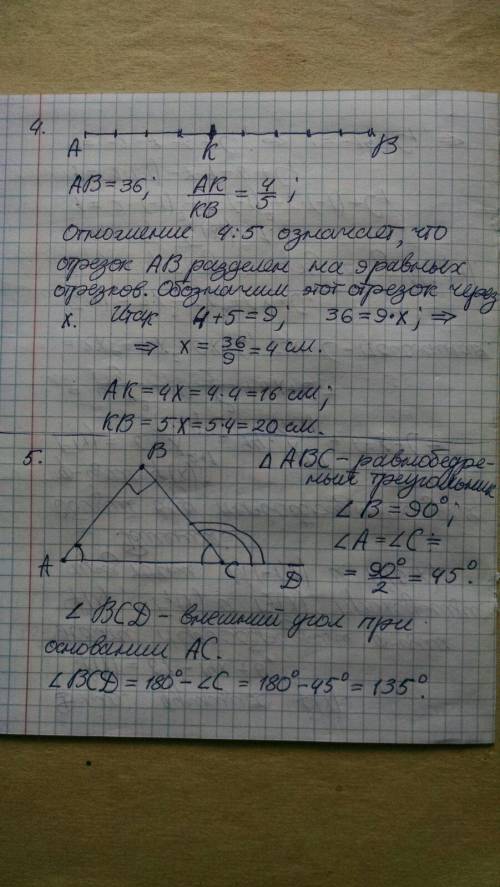 4.
A K B
AB = 36; AK/KB = 4/5;
Отношение 4:5 означает, что
отрезок AB разделен на 9 равных
отрезков. Обозначим этот отрезок через
x. Итак 4+5=9; 36=9·x; ⇒
⇒ x = 36/9 = 4 см.
AK = 4x = 4·4 = 16 см;
KB = 5x = 5·4 = 20 см.
5.
B
A C D
Δ ABC - равнобедре-
нный треугольник
∠B = 90°;
∠A = ∠C =
= 90°/2 = 45°.
∠BCD - внешний угол при
основании AC.
∠BCD = 180° - ∠C = 180° - 45° = 135°.